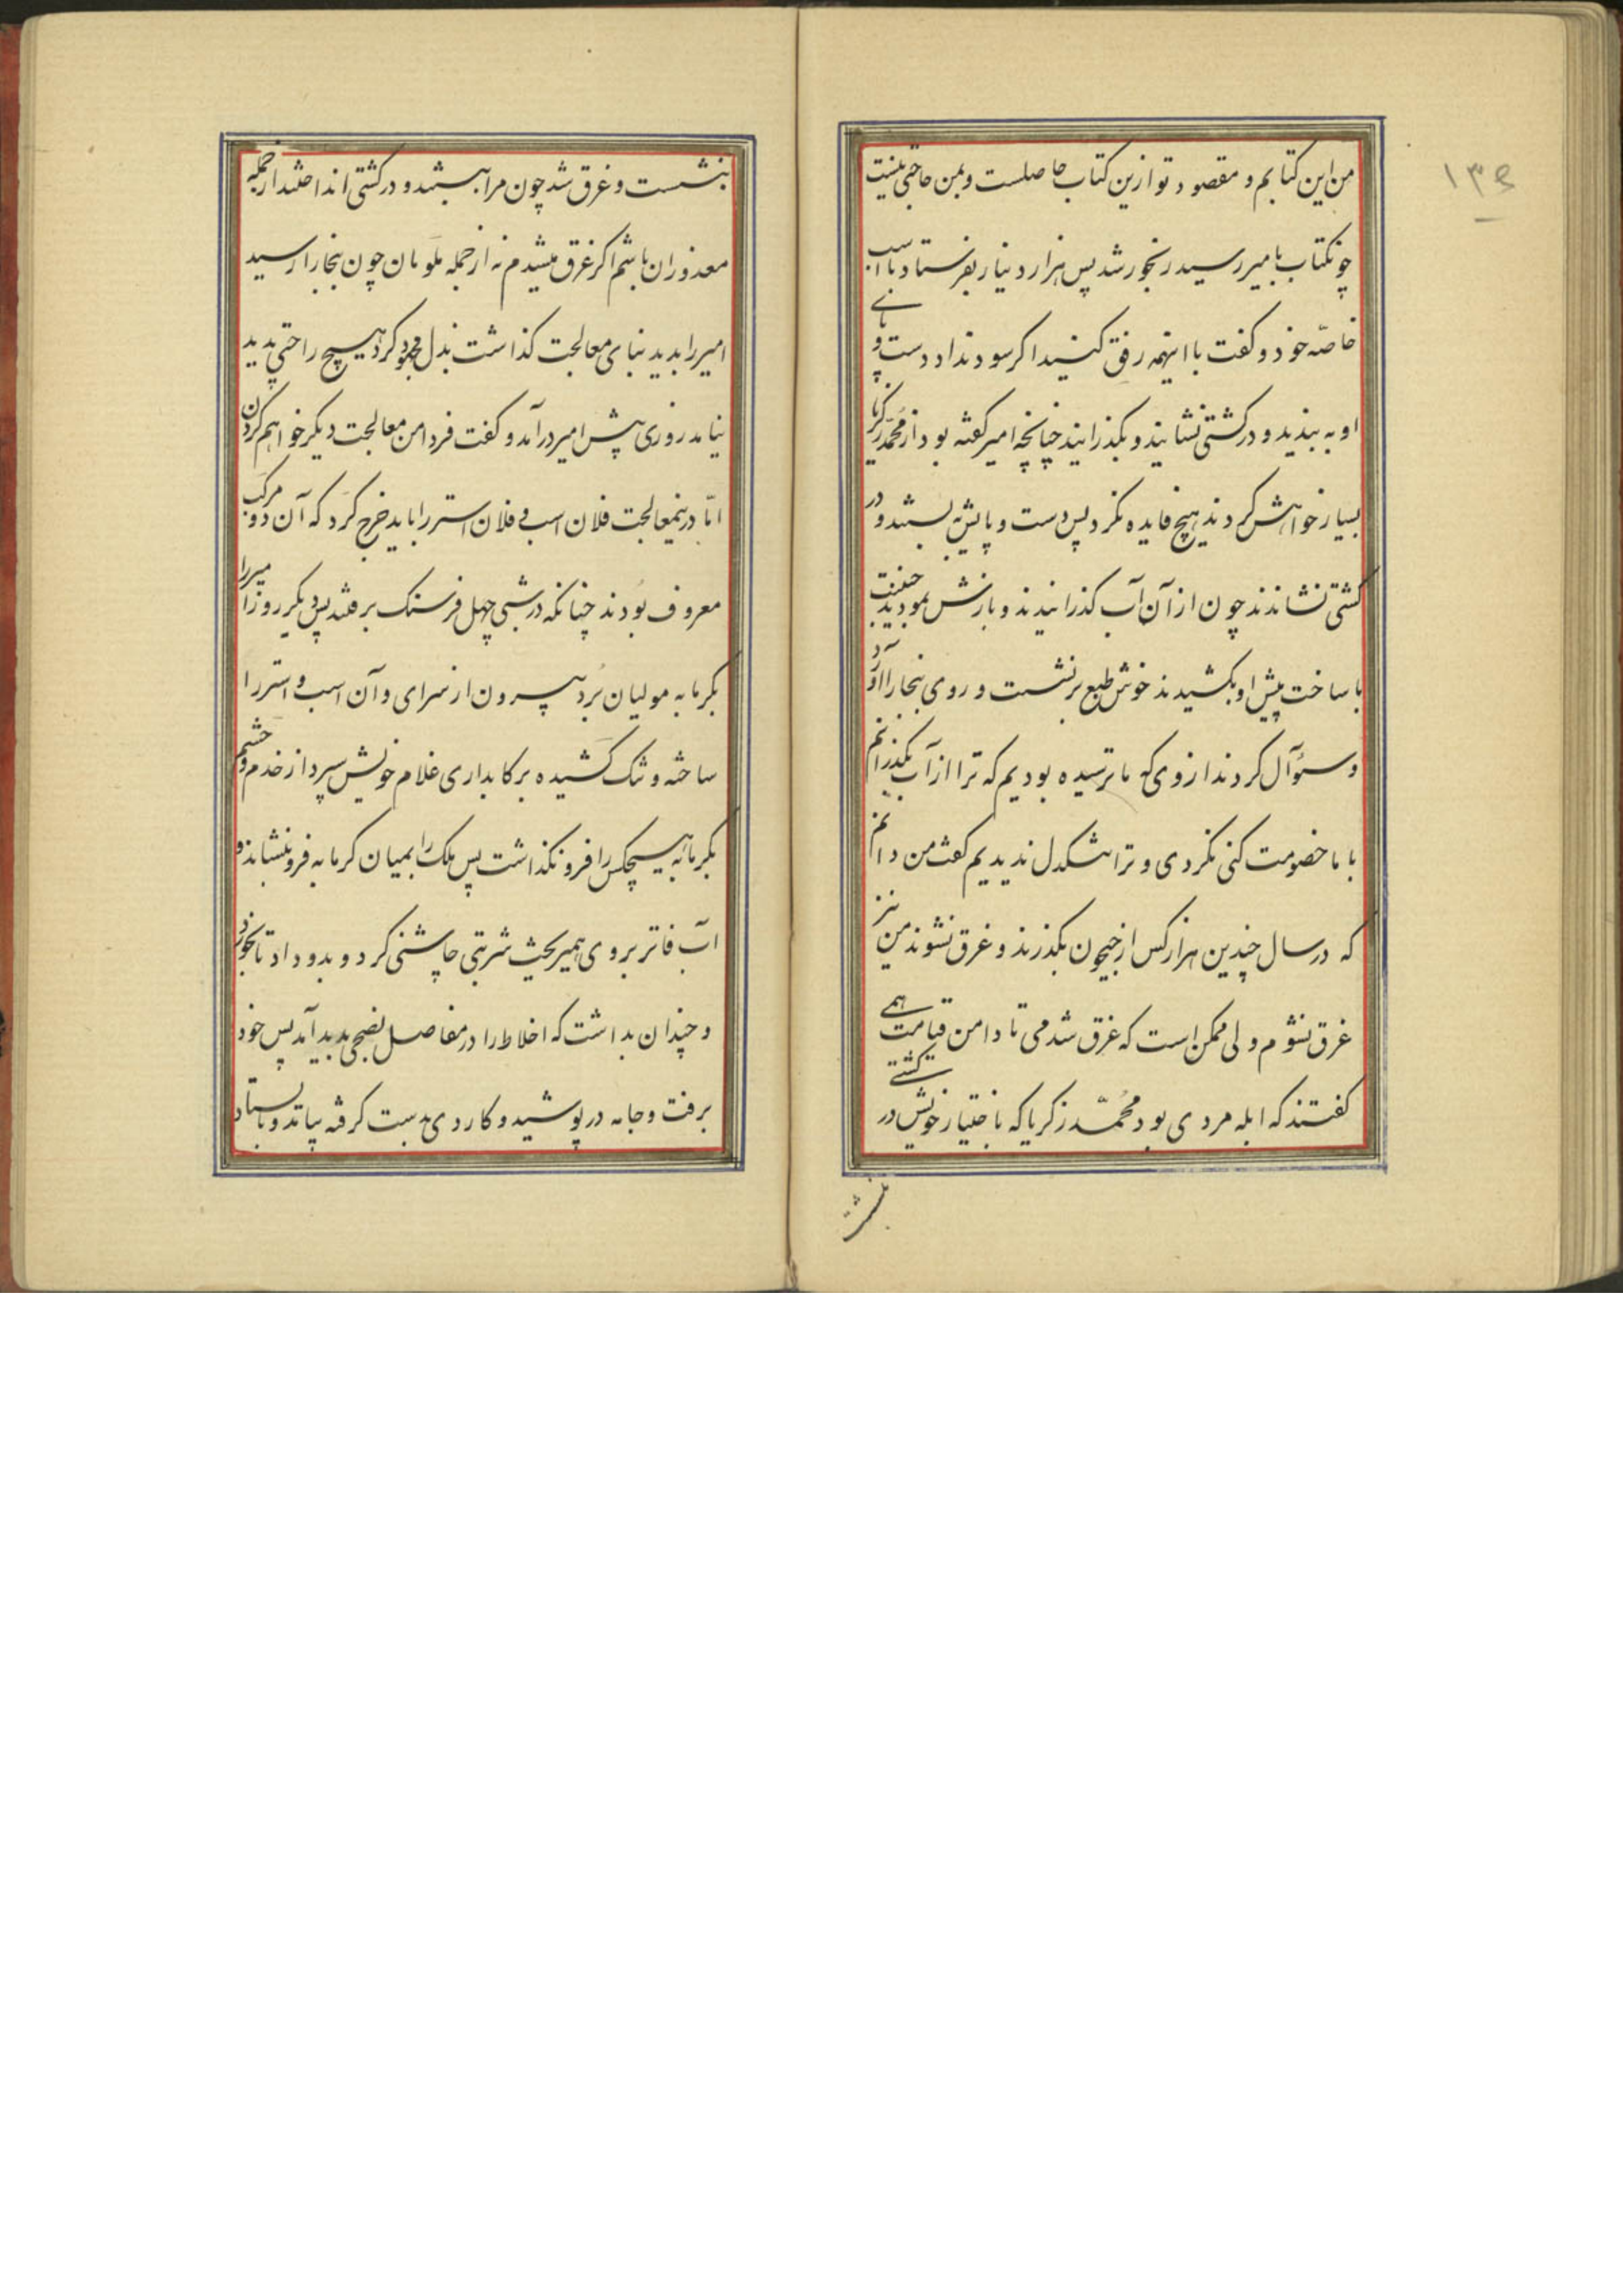 ۱۳۶
من این کتابم و مقصود تو ازین کتاب حاصلست و بمن حاجتی نیست
چونکتاب بامیر رسید رنجور شد پس هزار دینار بفرستاد با اسب
خاصّه خود و کفت با اینهمه رفق کنید اکر سود نداد دست و پای
او به بندید و در کشتی نشانید و بکذرانید چنانچه امیر کفته بود از محمّد زکریا
بسیار خواهش کردند هیچ فایده نکرد پس دست و پایش به بستند و در
کشتی نشاندند چون از آن آب کذرانیدند و بازش نمودید جنیبت
با ساخت پیش او بکشیدند خوش طبع برنشست و روی ببخارا آورد
و سئوآل کردند از وی که ما ترسیده بودیم که ترا از آب بکذرانیم
با ما خصومت کنی نکردی و ترا تنکدل ندیدیم کفت من دانم
که در سال چندین هزار کس از جیحون بکذرند و غرق نشوند من نیز
غرق نشوم ولی ممکن است که غرق شدمی تا دامن قیامت همی
کفتند که ابله مردی بود محُمّد زکریا که باختیار خویش در کشتی
بنشست
بنشست و غرق شد چون مرا ببستند و در کشتی انداختند از جمله
معذوران باشم اکر غرق میشدم نه از جمله ملومان چون ببخارا رسید
امیر را بدید بنای معالجت کذاشت بذل مجهود کرد هیچ راحتی پدید
نیامد روزی پیش امیر درآمد و کفت فردا من معالجت دیکر خواهم کردن
امّا درینمعالجت فلان اسب و فلان استر را باید خرج کرد که آن دو مرکب
معروف بُودند چنانکه در شبی چهل فرسنک برفتند پس دیکر روز امیر را
بکرمابه مولیان بُرد بیرون از سرای و آن اسب و استر را
ساخته و تنک کشیده برکابداری غلام خویش سپرد از خدم و حشم
بکرمابه هیچکس را فرو نکذاشت پس ملک را بمیان کرمابه فرو بنشاند و
آب فاتر بروی همیریخت شربتی چاشنی کرد و بدو داد تا بخورد
و چندان بداشت که اخلاط را در مفاصل نضجی پدید آمد پس خود
برفت و جامه در پوشید و کاردی بدست کرفته بیامد و باستاد